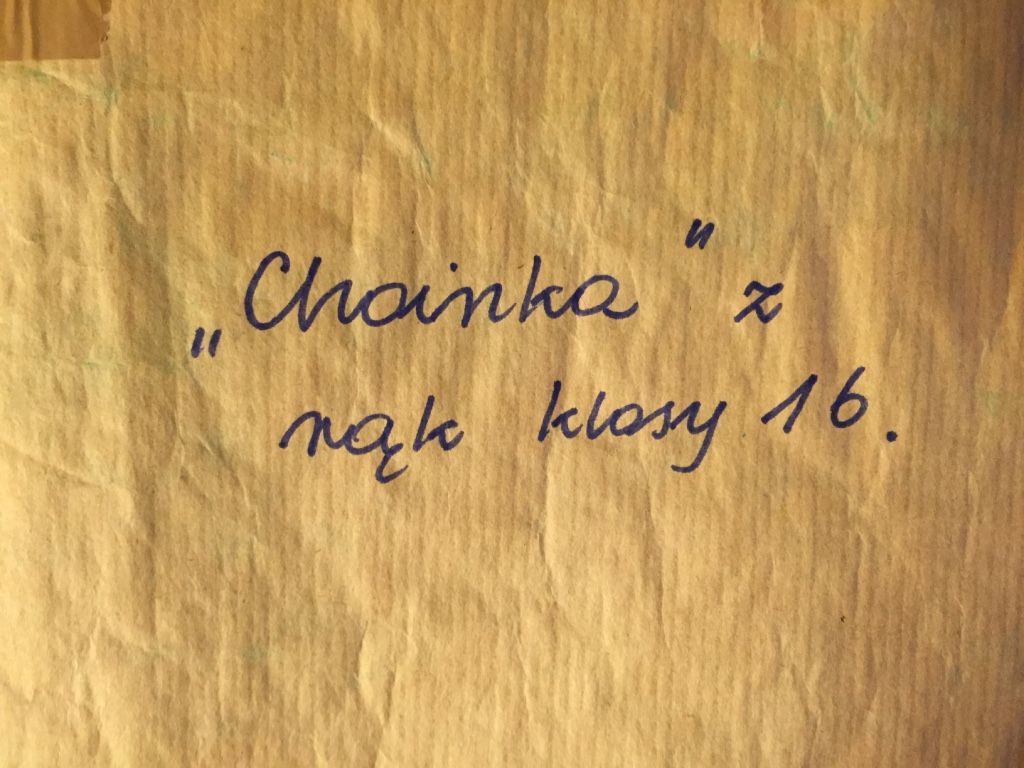 „Choinka" z
rąk klasy 1b.